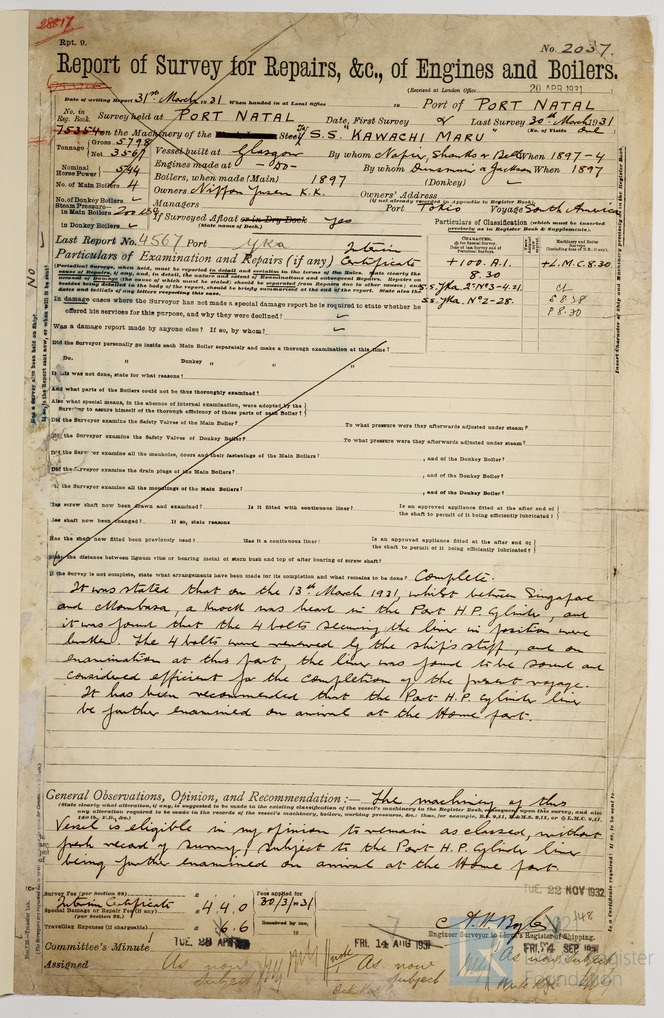 28817
Rpt. 9.
No. 2037.
Report of Survey for Repairs, &c., of Engines and Boilers.
(Received at London Office 20 APR 1931)
Date of writing Report 31st March 1931 When handed in at Local Office to Port of PORT NATAL
No. in Reg. Book. Survey held at PORT NATAL Date, First Survey & Last Survey 30th March 1931
15354 on the Machinery of the Steel S.S. "KAWACHI MARU" (No. of Visits One)
Tonnage Gross 5798
Net 3567
Vessel built at Glasgow By whom Napier, Shanks & Bell When 1897-4
Engines made at -do- By whom Dunsmuir & Jackson When 1897
Nominal Horse Power 544
Boilers, when made (Main) 1897 (Donkey)
No. of Main Boilers 4
Owners Nippon Yusen K.K. Owners' Address
(if not already recorded in Appendix to Register Book.)
No. of Donkey Boilers
Managers Port Tokio Voyage South America
Steam Pressure in Main Boilers 200 lbs
If Surveyed Afloat or in Dry Dock Yes
(State name of Dock.)
in Donkey Boilers
Particulars of Classification (which must be inserted precisely as in Register Book & Supplements).
Last Report No. 4567 Port Yka
Particulars of Examination and Repairs (if any) Interim Certificate
+100.A.1. +L.M.C. 8.30
8.30
S.S. Yka. 2nd No3-4.21
S.S. Yka. No2-28.
In damage cases where the Surveyor has not made a special damage report he is required to state whether he
offered his services for this purpose, and why they were declined?
Was a damage report made by anyone else? If so, by whom?
Did the Surveyor personally go inside each Main Boiler separately and make a thorough examination at this time?
Do. " Donkey " " "
If this was not done, state for what reasons?
And what parts of the Boilers could not be thus thoroughly examined?
Also what special means, in the absence of internal examination, were adopted by the
Surveyor to assure himself of the thorough efficiency of those parts of each Boiler?
Did the Surveyor examine the Safety Valves of the Main Boiler? To what pressure were they afterwards adjusted under steam?
Did the Surveyor examine the Safety Valves of Donkey Boiler? To what pressure were they afterwards adjusted under steam?
Did the Surveyor examine all the manholes, doors and their fastenings of the Main Boilers? , and of the Donkey Boiler?
Did the Surveyor examine the drain plugs of the Main Boilers? , and of the Donkey Boiler?
Did the Surveyor examine all the mountings of the Main Boilers? , and of the Donkey Boiler?
Has screw shaft now been drawn and examined? Is it fitted with continuous liner? Is an approved appliance fitted at the after end of
the shaft to permit of it being efficiently lubricated?
Has shaft now been changed? If so, state reasons
Has the shaft now fitted been previously used? Has it a continuous liner? Is an approved appliance fitted at the after end of
the shaft to permit of it being efficiently lubricated?
State the distance between lignum vitæ or bearing metal of stern bush and top of after bearing of screw shaft?
If the Survey is not complete, state what arrangements have been made for its completion and what remains to be done? Complete.
It was stated that on the 13th March 1931, whilst between Singapore
and Mombasa, a knock was heard in the Port H.P. Cylinder, and
it was found that the 4 bolts securing the liner in position were
broken. The 4 bolts were renewed by the ship's staff, and on
examination at this port, the liner was found to be sound and
considered efficient for the completion of the present voyage.
It has been recommended that the Port H.P. Cylinder liner
be further examined on arrival at the Home port.
General Observations, Opinion, and Recommendation:— The machinery of this
Vessel is eligible in my opinion to remain as classed, without
fresh record of survey, subject to the Port H.P. Cylinder liner
being further examined on arrival at the Home port.
TUE. 22 NOV 1932
Survey Fee (per Section 28)
Fees applied for
Interim Certificate £ 4.4.0 30/3/1931
Special Damage or Repair Fee (if any)
(per Section 28.)
Received by me,
Travelling Expenses (if chargeable) £ 6.6
Engineer Surveyor to Lloyd's Register of Shipping.
Committee's Minute TUE. 28 APR 1931 FRI. 14 AUG 1931 FRI. 4 SEP
Assigned As now subject As now subject As now subject